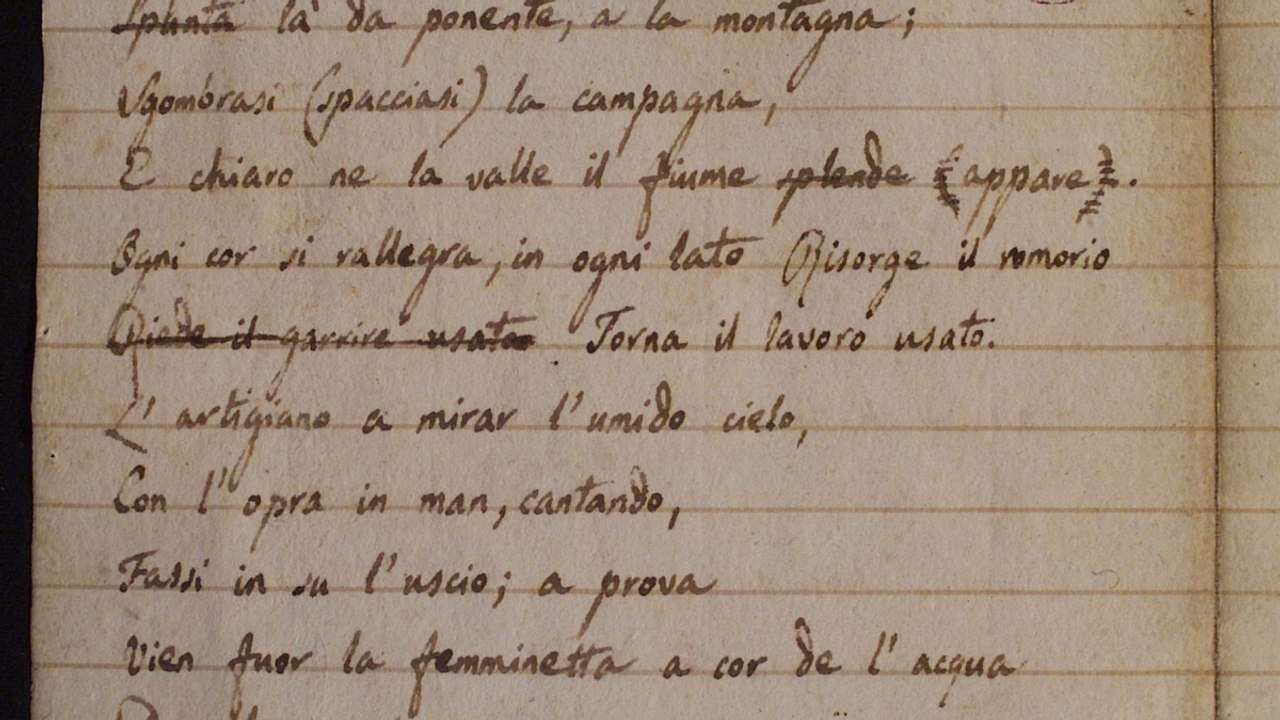 Spunta là da ponente, a la montagna;
Sgombrasi (spacciasi) la campagna,
E chiaro ne la valle il fiume splende (appare).
Ogni cor si rallegra, in ogni lato Risorge il romorio
Riede il garrire usato Torna il lavoro usato.
L' artigiano a mirar l'umido cielo,
Con l'opra in man, cantando,
Fassi in su l'uscio; a prova
Vien fuor la femminetta a cor de l'acqua